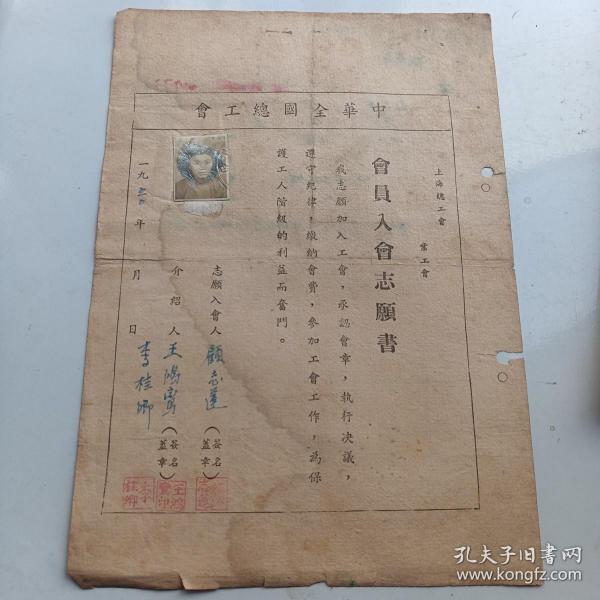 會工總國全華中
上海總工會
業工會
會員入會志願書
我志願加入工會，承認會章，執行决議，
遵守紀律，繳納會費，參加工會工作，為保
護工人階級的利益而奮鬥。
志願入會人 顧志蓮 （簽名蓋章）
介紹人 王鴻寶 （簽名蓋章）
李桂卿
一九五〇年 月 日
孔夫子旧书网
www.kongfz.com